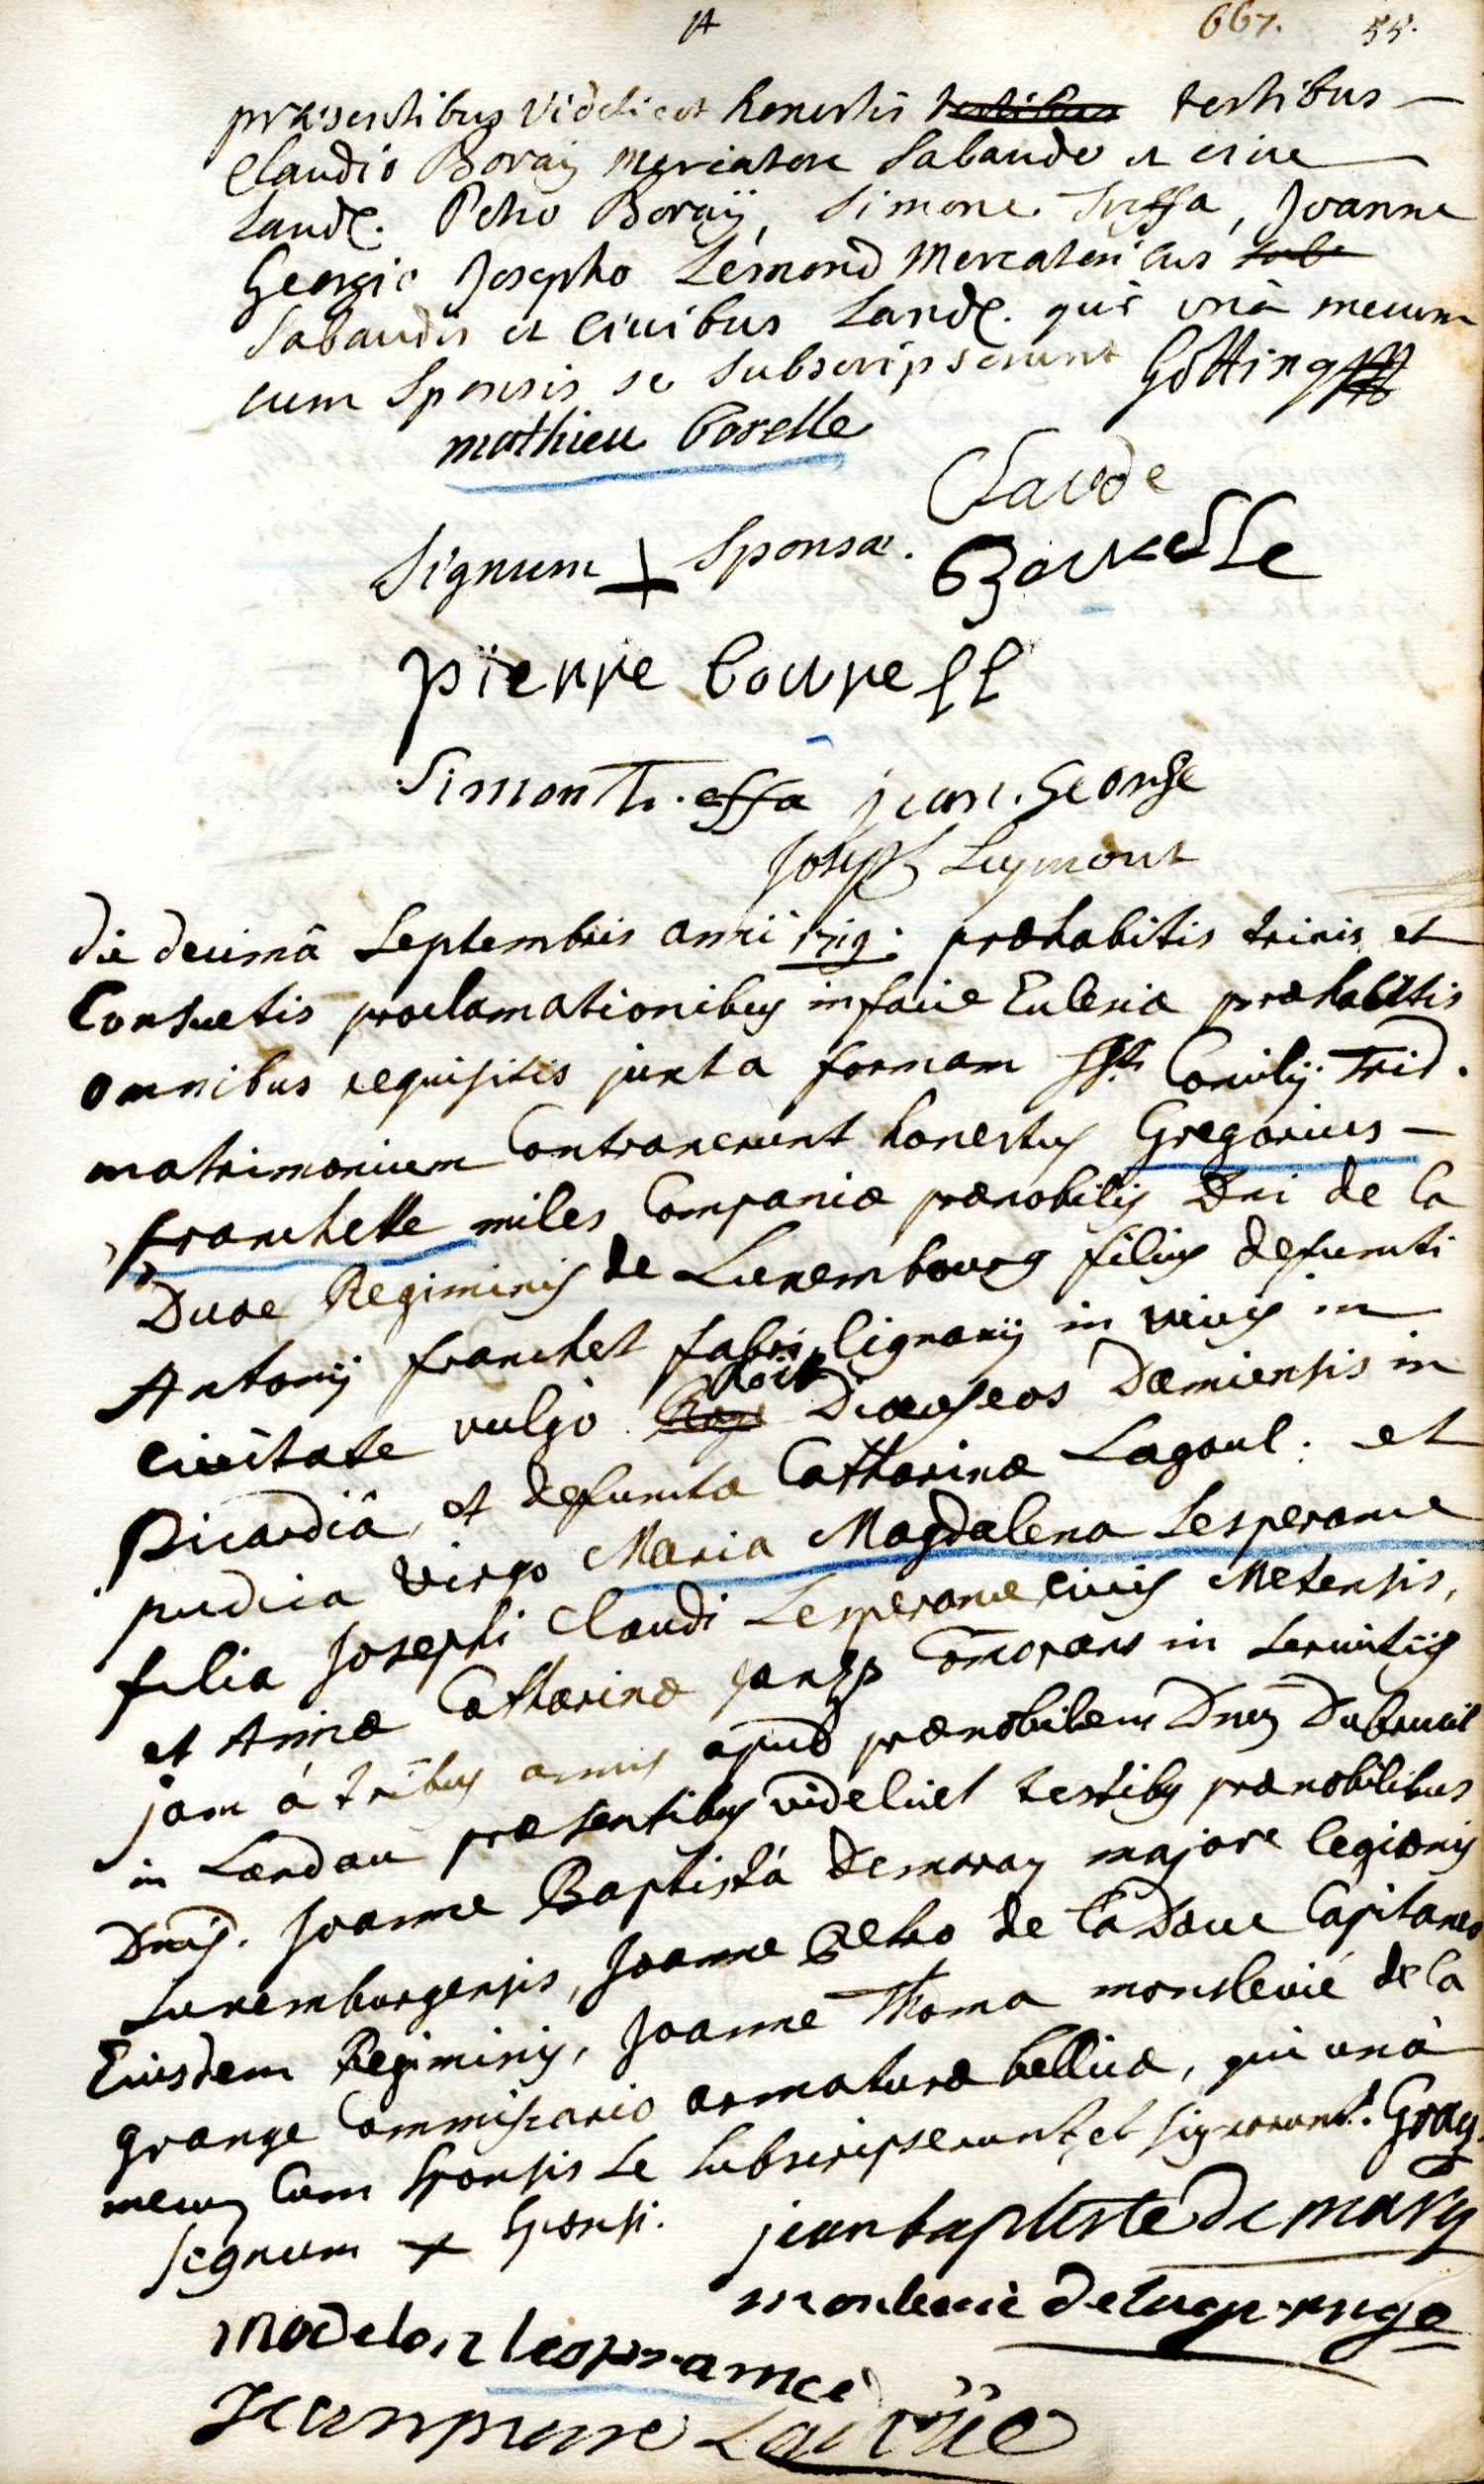 A 667. 55.
præsentibus videlicet honestis testibus testibus —
Claudio Boraÿ mercatore Sabaudo et cive
Land. Petro Boraÿ, Simone Treffa, Joanne
Georgio Josepho Lémond Mercatoribus Sab
Sabaudis et civibus Land. qui unà mecum
cum Sponsis se Subscripserunt Götting
mathieu borelle
Claude
Signum + Sponsæ.
Bourelle
pierre bourell
Simon Treffa jean George
Joseph Leymont
die decimâ Septembris anni 1719. præhabitis trinis et
Consuetis proclamationibus in facie Ecclesiæ præhabitis
omnibus requisitis juxta formam SSti Concilij Trid.
matrimonium Contraxerunt honestus Gregorius —
franchette miles Compania prænobilis Dni de la
Duve Regiminis de Luxembourg filius defuncti
Antonij franchet fabri lignarij in vivis in
civitate vulgò Roye Roie Dioeceseos Damiensis in
Picardiâ, et defuncta Catharinæ Lagoul. et
pudica virgo Maria Magdalena Lesperance
filia Josephi Claudi Lesperance civis Metensis,
et Annæ Catharinæ comorans in servitijs
jam à tribus annis apud prænobilem Dnum Dubreuil
in Landau præsentibus videlicet testibus prænobilibus
Dnis. Joanne Baptistá Demaray majore legionis
Luxemburgensis, Joanne Petro de la Douve Capitaneo
Eiusdem Regiminis, Joanne Thoma monslevié de la
grange Commissario armaturæ bellicæ, qui unà
mecum Cum Sponsis se subscripserunt et signarunt.
signum + Sponsi. jean baptiste de mary
monlevié delagrange
madelon lesperance
Jean pierre Ladüe